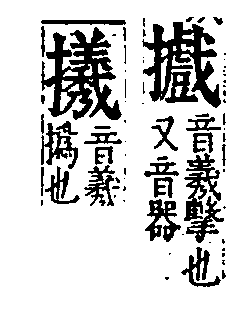 音羲擊也
又音器
音羲
撝也